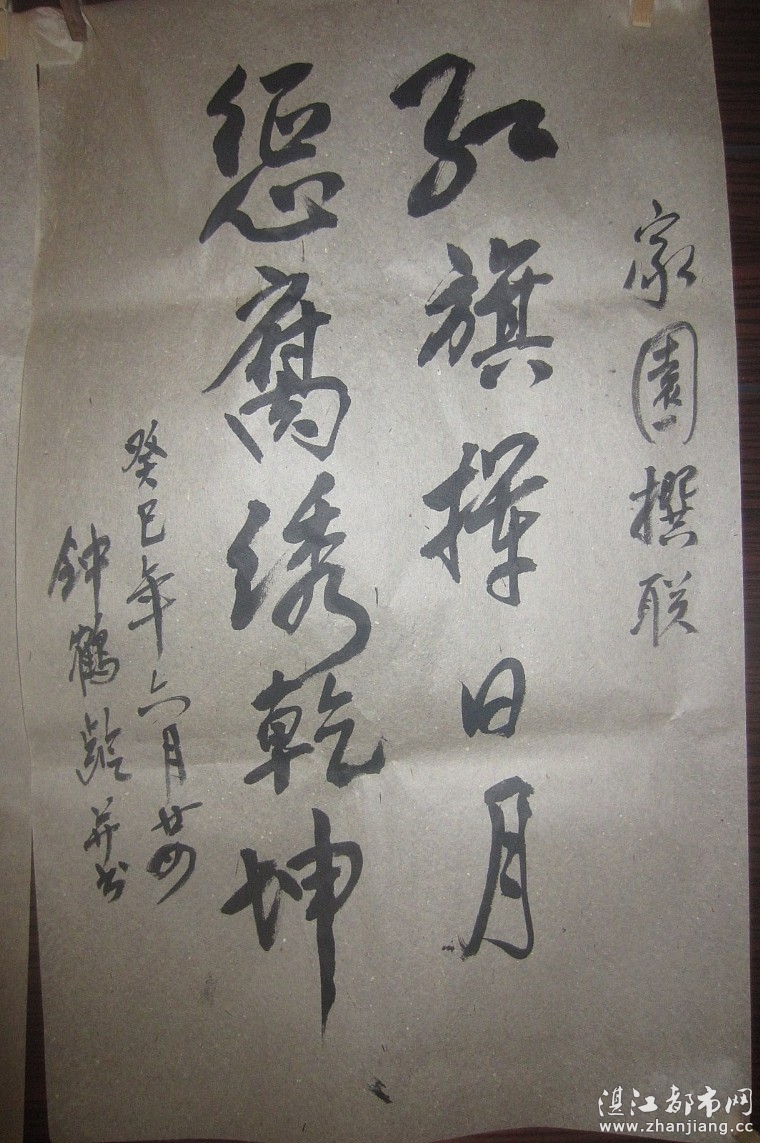 家园撰联
红旗挥日月
惩腐绣乾坤
癸巳年六月廿四
钟鶴齡并书
湛江都市网
www.zhanjiang.cc